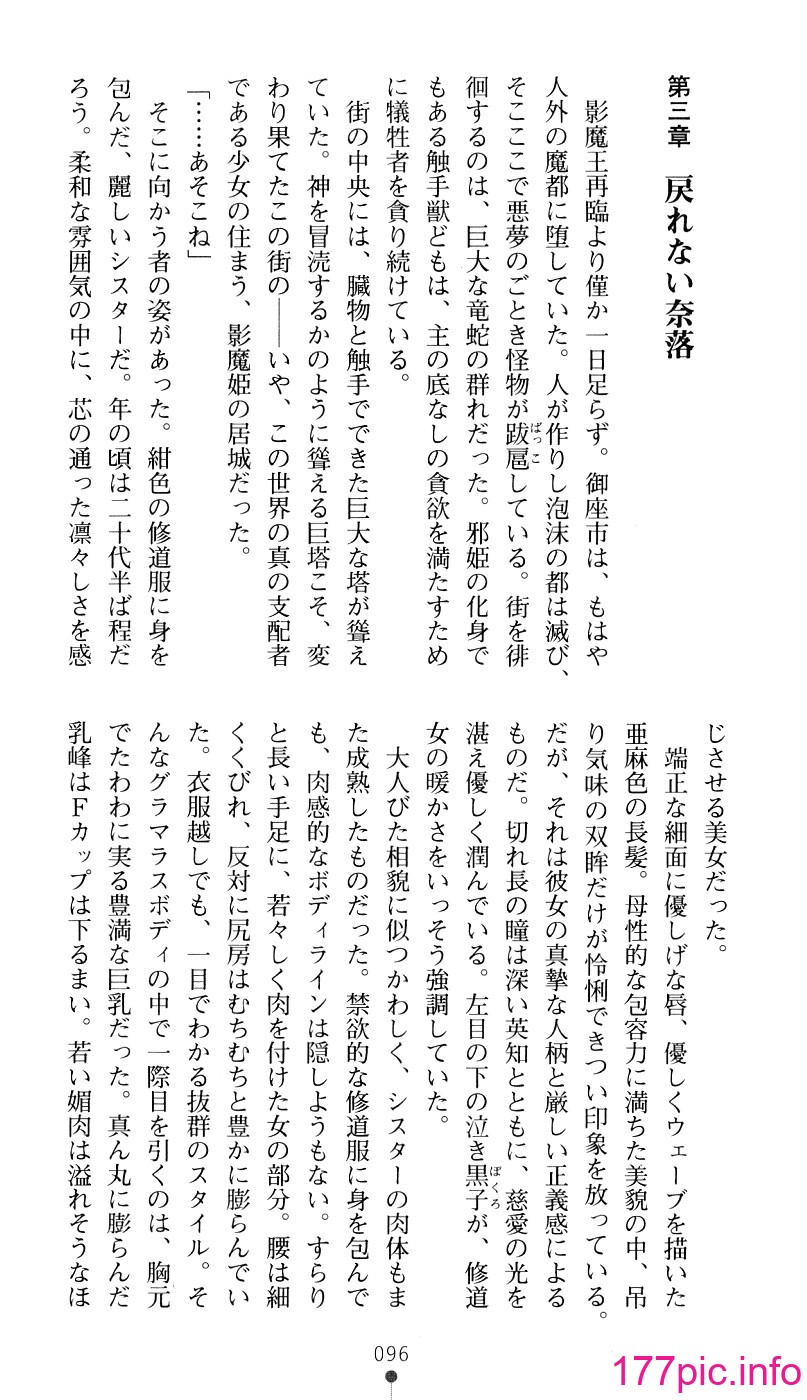 第三章　戻れない奈落
　影魔王再臨より僅か一日足らず。御座市は、もはや
人外の魔都に堕していた。人が作りし泡沫の都は滅び、
そこここで悪夢のごとき怪物が跋扈している。街を徘
ばっこ
徊するのは、巨大な竜蛇の群れだった。邪姫の化身で
もある触手獣どもは、主の底なしの貪欲を満たすため
に犠牲者を貪り続けている。
　街の中央には、臓物と触手でできた巨大な塔が聳え
ていた。神を冒涜するかのように聳える巨塔こそ、変
わり果てたこの街の――いや、この世界の真の支配者
である少女の住まう、影魔姫の居城だった。
「……あそこね」
　そこに向かう者の姿があった。紺色の修道服に身を
包んだ、麗しいシスターだ。年の頃は二十代半ば程だ
ろう。柔和な雰囲気の中に、芯の通った凛々しさを感
じさせる美女だった。
　端正な細面に優しげな唇、優しくウェーブを描いた
亜麻色の長髪。母性的な包容力に満ちた美貌の中、吊
り気味の双眸だけが怜悧できつい印象を放っている。
だが、それは彼女の真摯な人柄と厳しい正義感による
ものだ。切れ長の瞳は深い英知とともに、慈愛の光を
湛え優しく潤んでいる。左目の下の泣き黒子が、修道
ぼくろ
女の暖かさをいっそう強調していた。
　大人びた相貌に似つかわしく、シスターの肉体もま
た成熟したものだった。禁欲的な修道服に身を包んで
も、肉感的なボディラインは隠しようもない。すらり
と長い手足に、若々しく肉を付けた女の部分。腰は細
くくびれ、反対に尻房はむちむちと豊かに膨らんでい
た。衣服越しでも、一目でわかる抜群のスタイル。そ
んなグラマラスボディの中で一際目を引くのは、胸元
でたわわに実る豊満な巨乳だった。真ん丸に膨らんだ
乳峰はＦカップは下るまい。若い媚肉は溢れそうなほ
096
177pic.info